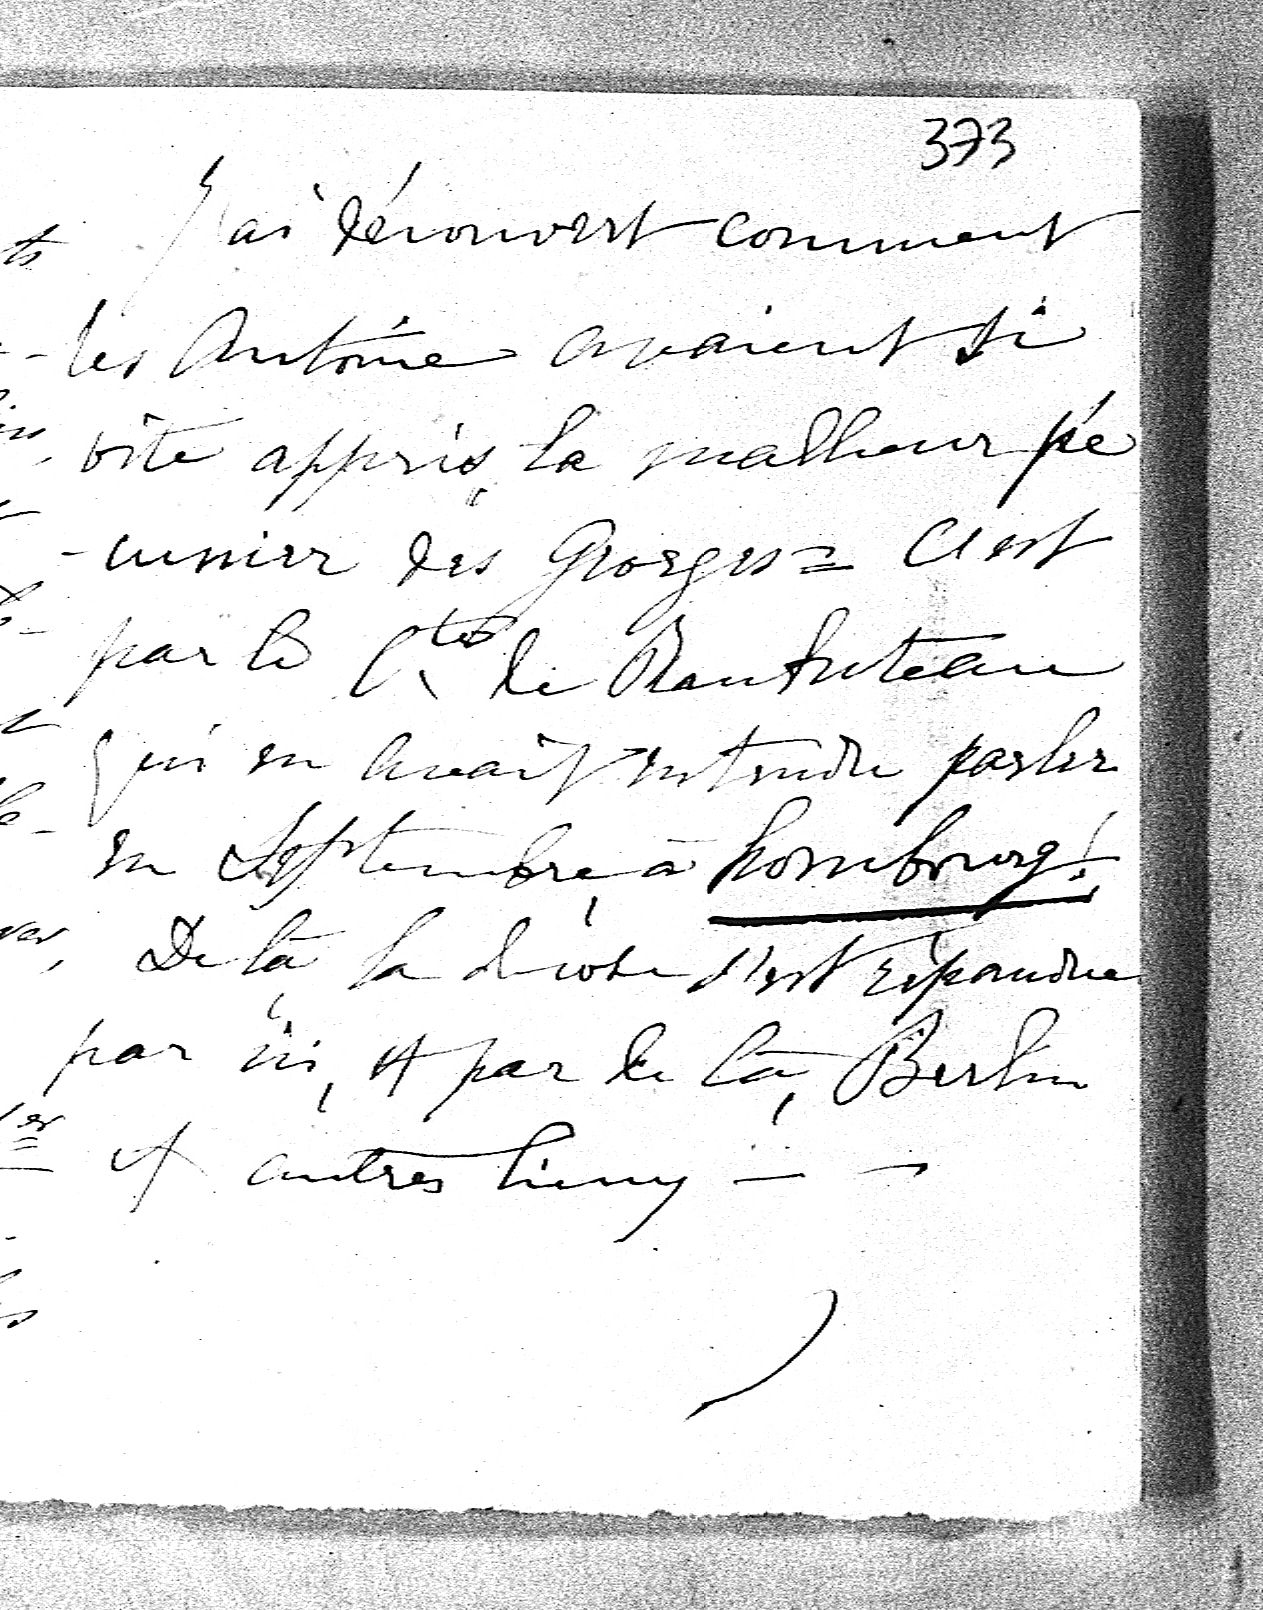 373
J'ai découvert comment
les Antoine avaient si
vite appris, le malheur pé
-cunier des Georges = C'est
par le Cte de
qui en avait entendu parler
en Septembre, à hombourg!
De là, la chose s'est répandue
par ici, et par de là, Berlin
et autres lieux — —